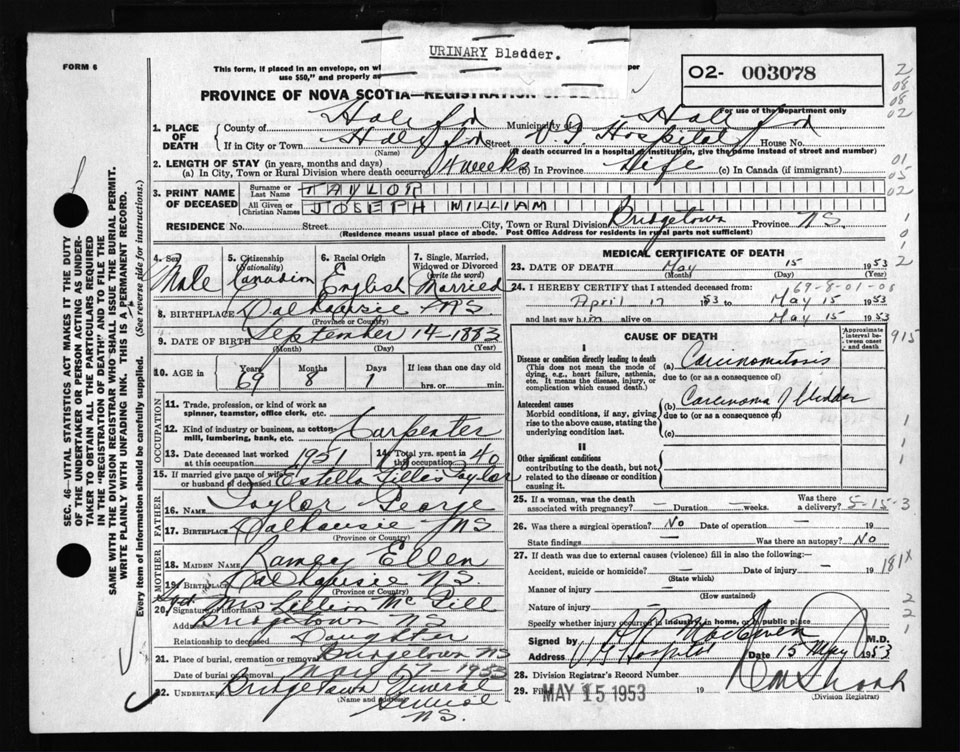 URINARY Bladder.
FORM 6
This form, if placed in an envelope, on wi
use $50," and properly a
02- 003078
PROVINCE OF NOVA SCOTIA—REGISTRATION OF DEATH
For use of the Department only
1. PLACE OF DEATH
County of Halifax Municipality Halifax
If in City or Town Halifax Street Hospital House No.
(If death occurred in a hospital or institution, give the name instead of street and number)
2. LENGTH OF STAY (in years, months and days)
(a) In City, Town or Rural Division where death occurred 4 weeks (b) In Province Life (c) In Canada (if immigrant)
3. PRINT NAME OF DECEASED
Surname or Last Name TAYLOR
All Given or Christian Names JOSEPH WILLIAM
RESIDENCE No. Street City, Town or Rural Division Bridgetown Province NS.
(Residence means usual place of abode. Post Office Address for residents in rural parts not sufficient)
4. Sex, Male
5. Citizenship (Nationality) Canadian
6. Racial Origin English
7. Single, Married, Widowed or Divorced (write the word) Married
8. BIRTHPLACE Dalhousie NS.
(Province or Country)
9. DATE OF BIRTH September 14-1883
(Month) (Day) (Year)
10. AGE in Years 69 Months 8 Days 1 If less than one day old
hrs. or min.
OCCUPATION
11. Trade, profession, or kind of work as spinner, teamster, office clerk, etc.
12. Kind of industry or business, as cotton-mill, lumbering, bank, etc. Carpenter
13. Date deceased last worked at this occupation 1951
14. Total yrs. spent in this occupation 40
15. If married give name of wife or husband of deceased Estella Gillis Taylor
FATHER
16. NAME Taylor George
17. BIRTHPLACE Dalhousie NS
(Province or Country)
MOTHER
18. MAIDEN NAME Ramey Ellen
19. BIRTHPLACE Dalhousie NS.
(Province or Country)
20. Signature of informant Mrs Lillian McGill
Address Bridgetown NS
Relationship to deceased Daughter
21. Place of burial, cremation or removal Bridgetown NS
Date of burial or removal May 17-1953
22. UNDERTAKER Bridgetown Funeral Service
(Name and address)
N.S.
MEDICAL CERTIFICATE OF DEATH
23. DATE OF DEATH May 15 1953
(Month) (Day) (Year)
69-8-01-06
24. I HEREBY CERTIFY that I attended deceased from:
April 17 1953 to May 15 1953
and last saw him alive on May 15 1953
CAUSE OF DEATH
Approximate interval between onset and death
I
Disease or condition directly leading to death
(This does not mean the mode of dying, e.g., heart failure, asthenia, etc. It means the disease, injury, or complication which caused death.)
(a) Carcinomatosis
due to (or as a consequence of)
Antecedent causes
Morbid conditions, if any, giving rise to the above cause, stating the underlying condition last.
(b) Carcinoma of bladder
due to (or as a consequence of)
(c)
II
Other significant conditions
contributing to the death, but not related to the disease or condition causing it.
25. If a woman, was the death associated with pregnancy? — Duration — weeks. Was there a delivery?
5-15-3
26. Was there a surgical operation? No Date of operation — 19
State findings — Was there an autopsy? No
27. If death was due to external causes (violence) fill in also the following:—
Accident, suicide or homicide? — Date of injury — 19
(State which)
Manner of injury
(How sustained)
Nature of injury
Specify whether injury occurred in industry, in home, or in public place
Signed by MacEwen M.D.
Address Hospital Date 15 May 1953
28. Division Registrar's Record Number
29. Filed MAY 15 1953 19
(Division Registrar)
2
08
08
02
01
05
02
1
0
1
2
915
1
1
1
181X
2
2
1
SEC. 46—VITAL STATISTICS ACT MAKES IT THE DUTY
OF THE UNDERTAKER OR PERSON ACTING AS UNDER-
TAKER TO OBTAIN ALL THE PARTICULARS REQUIRED
IN THE "REGISTRATION OF DEATH" AND TO FILE THE
SAME WITH THE DIVISION REGISTRAR WHO SHALL ISSUE THE BURIAL PERMIT.
WRITE PLAINLY WITH UNFADING INK. THIS IS A PERMANENT RECORD.
Every item of information should be carefully supplied. (See reverse side for instructions.)